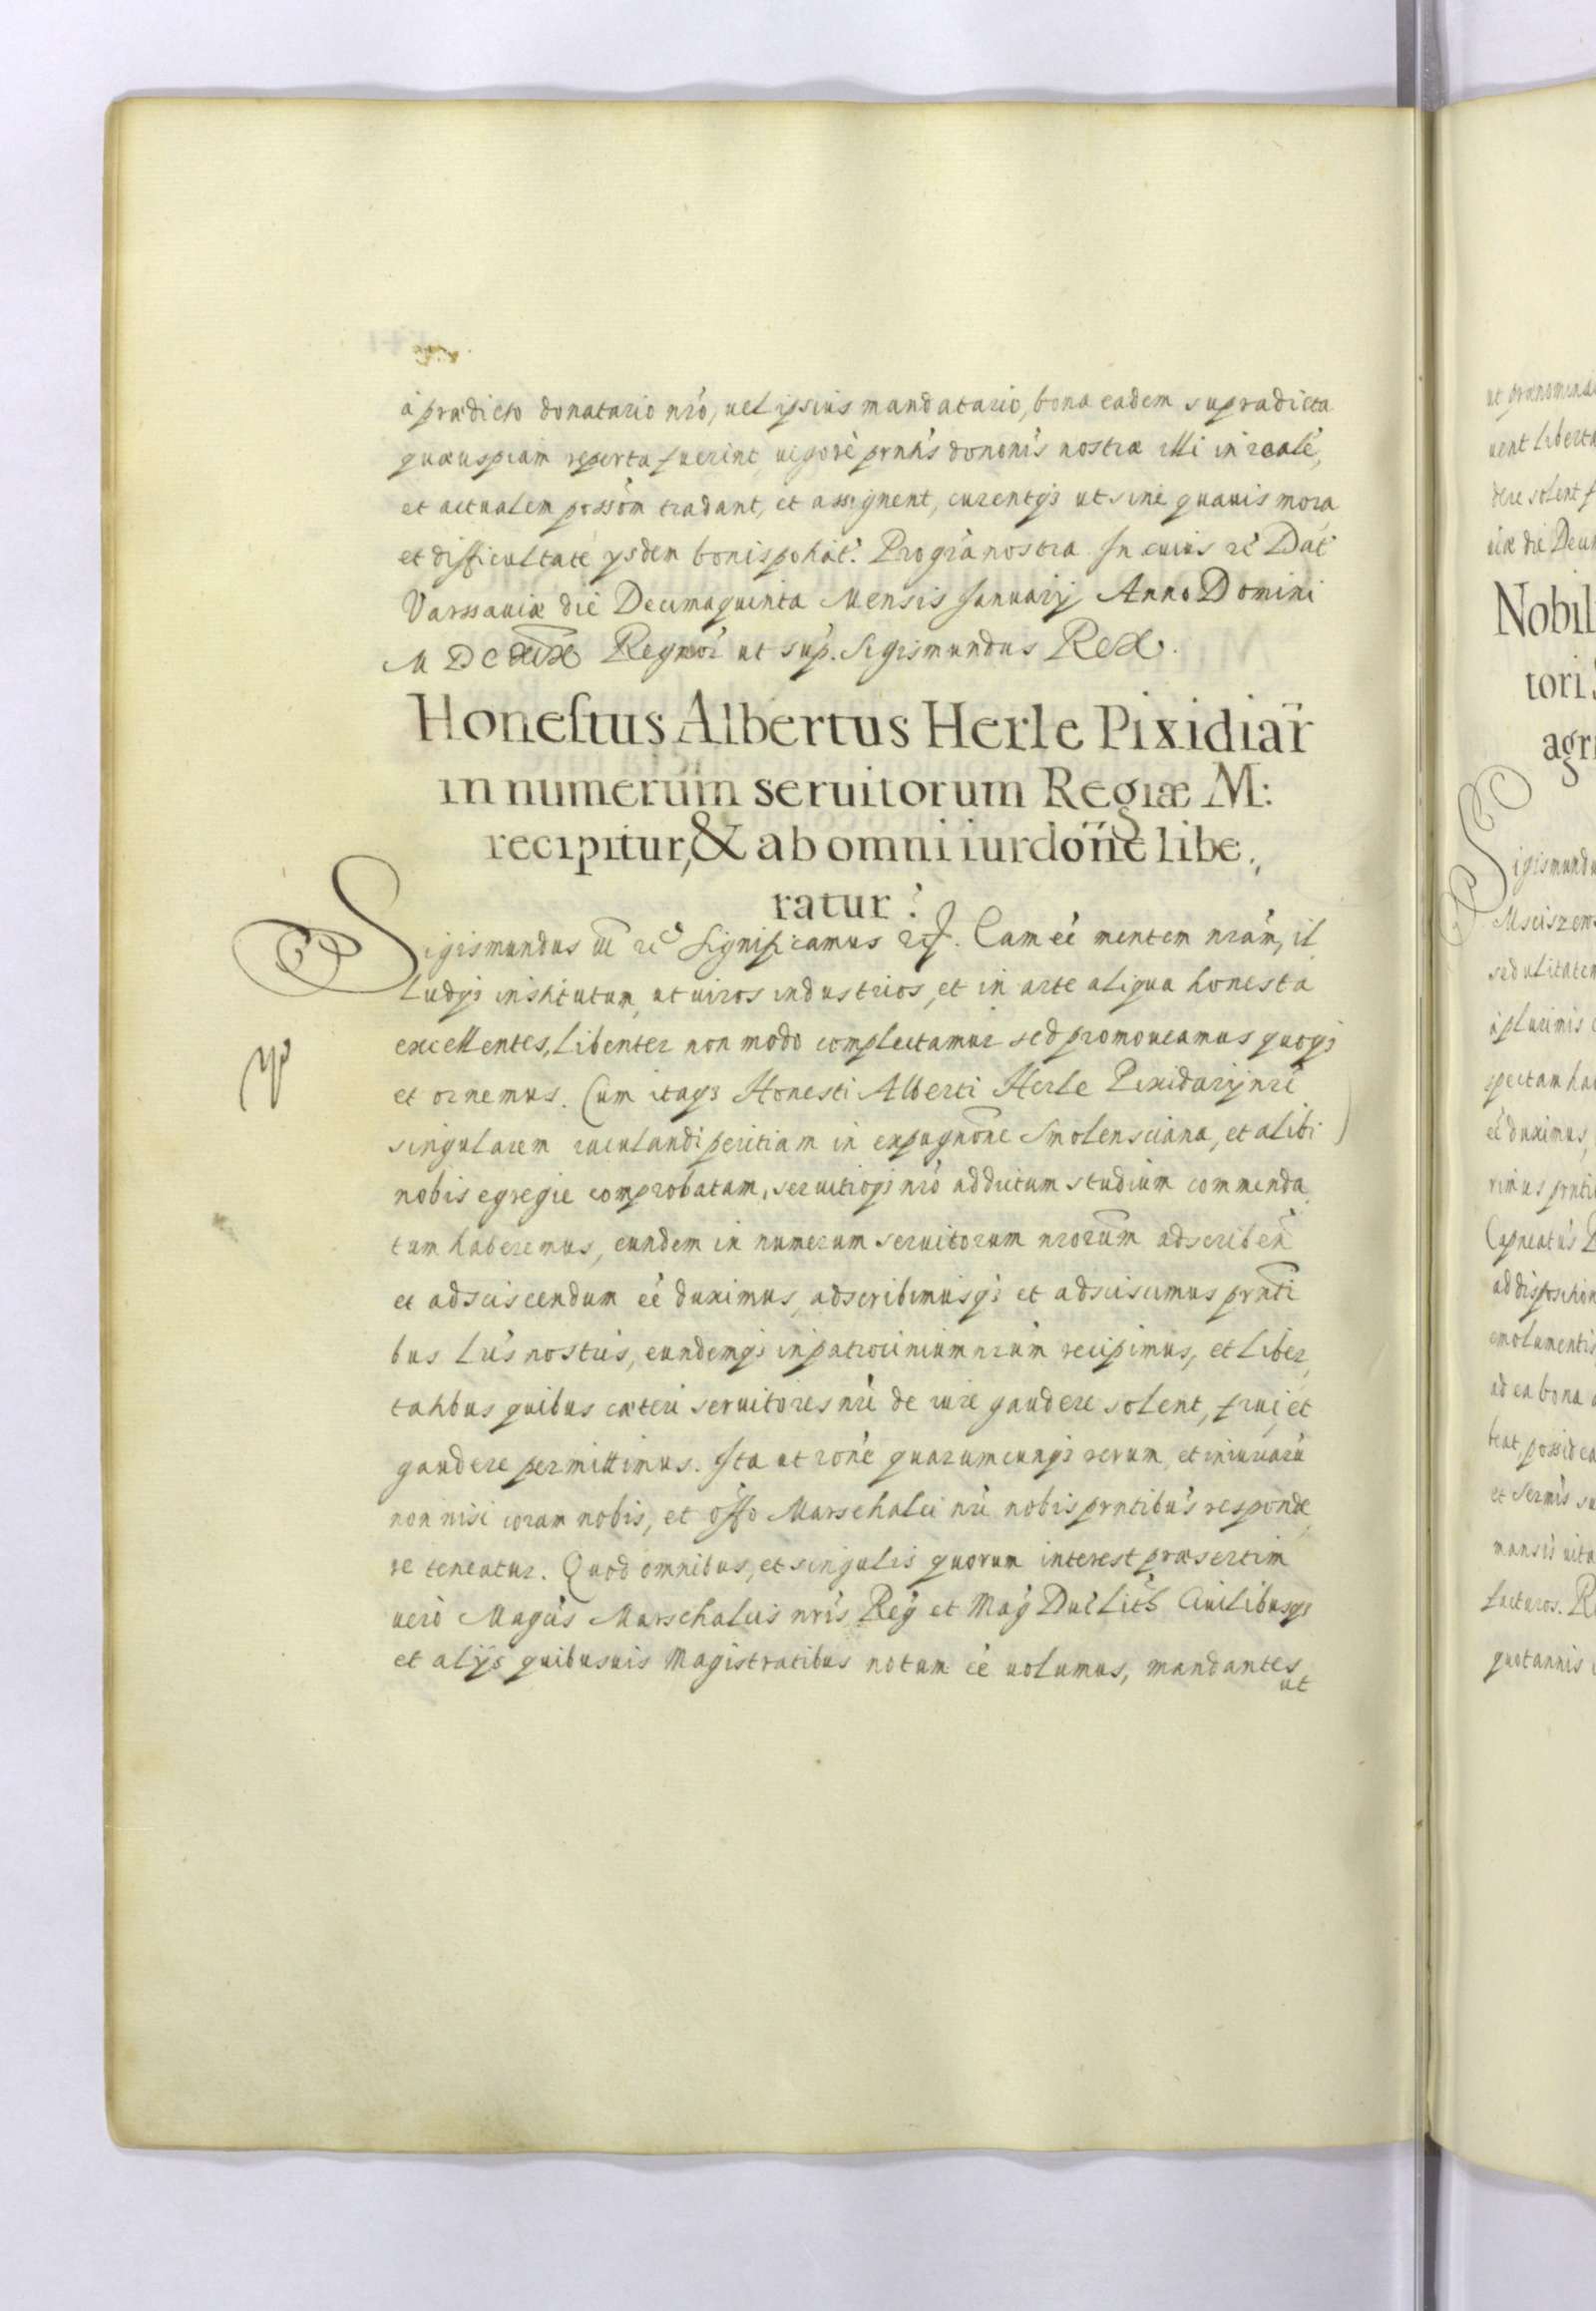 à prædicto donatario nrō, uel ipsius mandatario, bona eadem supradicta
quæuspiam reperta fuerint, uigore prntis dononis nostræ illi in realē,
et actualem posson tradant, et assignent, curentqȝ ut sine quauis mora
et difficultate ysdem bonis potiat. Pro gra nostra In cuius rē Dat
Varssauiæ die Decimaquinta Mensis Januarij Anno Domini
M DC Regnor ut sup. Sigismundus Rex.
Honeſtus Albertus Herle Pixidiar
in numerum seruitorum Regiæ M:
recipitur, & ab omni iurdone libe,,
ratur:
Sigismundus III rc Significamus Eam eē mentem nram, il,
ludqȝ institutum, ut uiros industrios, et in arte aliqua honesta
excellentes, libenter non modo complectamur sed promoueamus quoqȝ
et ornemus. Cum itaqȝ Honesti Alberti Herle Pixidarij nri
singularem iaculandi peritiam in expugnone Smolensciana, et alibi
nobis egregie comprobatam, seruitioqȝ nro addictum studium commenda,
tum haberemus, eundem in numerum seruitorum nrorum adscriben
et adsciscendum eē duximus, adscribimusqȝ et adsciscimus prnti
bus lris nostris, eundemqȝ in patrocinium nrum recipimus, et liber,
tatibus quibus cæteri seruitores nri de iure gaudere solent, frui, et
gaudere permittimus. Ita ut rone quarumcunqȝ rerum, et iniuriarū
non nisi coram nobis, et offo Marschalci nri nobis prntibus responde,
re teneatur. Quod omnibus, et singulis quorum interest præsertim
uero Magcis Marschalcis nris Reg et Mag Duc Lith Ciuilibusqȝ
et alijs quibusuis Magistratibus notum eē uolumus, mandantes,
ut
ut prænominat
uent liberta
dere solent f
uiæ die Decim
Nobil
tori
agr
Sigismundu
Msciszens
sedulitatem
à plurimis
spectam ha
eē duximus,
rimus prnti
Capneatus
ad dispositon
emolumentis
ad ea bona
beat, possidea
et Sermis su
mansis uita
facturos. R
quotannis